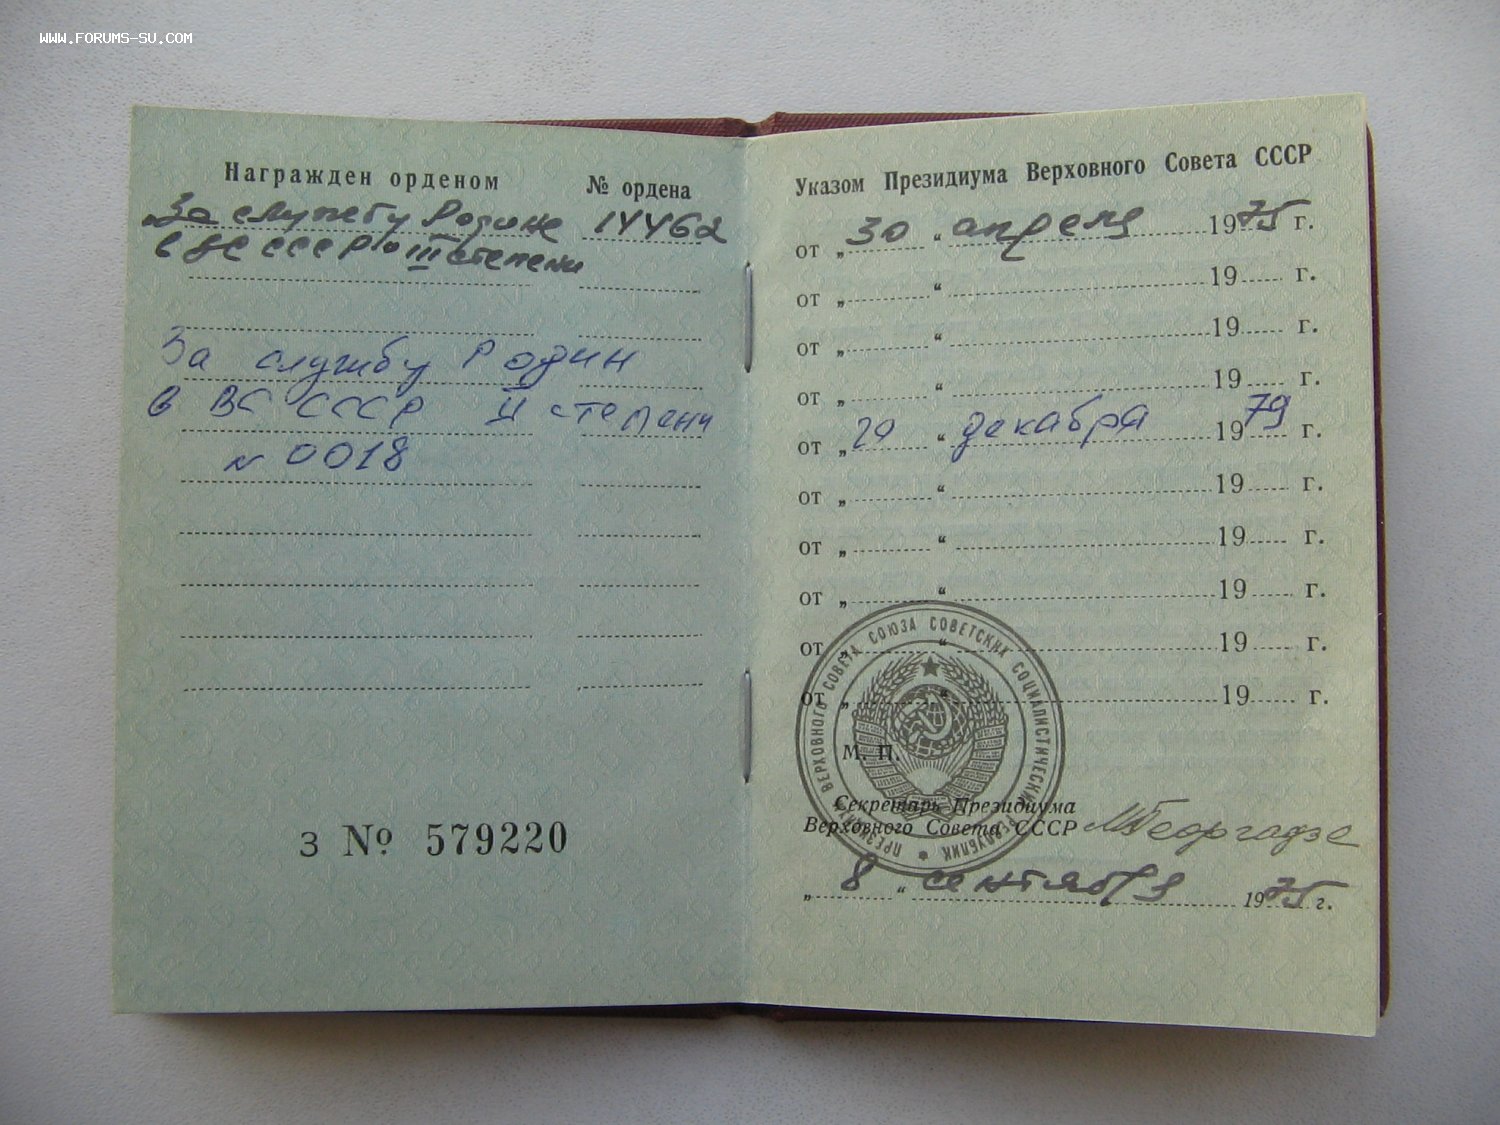 WWW.FORUMS-SU.COM
Награжден орденом № ордена
За службу Родине 14462
в ВС СССР III степени
За службу Родин
в ВС СССР II степени
N 0018
З № 579220
Указом Президиума Верховного Совета СССР
от „ 30 “ апреля 1975 г.
от „ “ 19 г.
от „ “ 19 г.
от „ “ 19 г.
от „ 29 “ декабря 1979 г.
от „ “ 19 г.
от „ “ 19 г.
от „ “ 19 г.
от „ “ 19 г.
от „ “ 19 г.
ПРЕЗИДИУМ ВЕРХОВНОГО СОВЕТА СОЮЗА СОВЕТСКИХ СОЦИАЛИСТИЧЕСКИХ РЕСПУБЛИК
М. П.
Секретарь Президиума
Верховного Совета СССР МГеоргадзе
„ 8 “ сентября 1975 г.